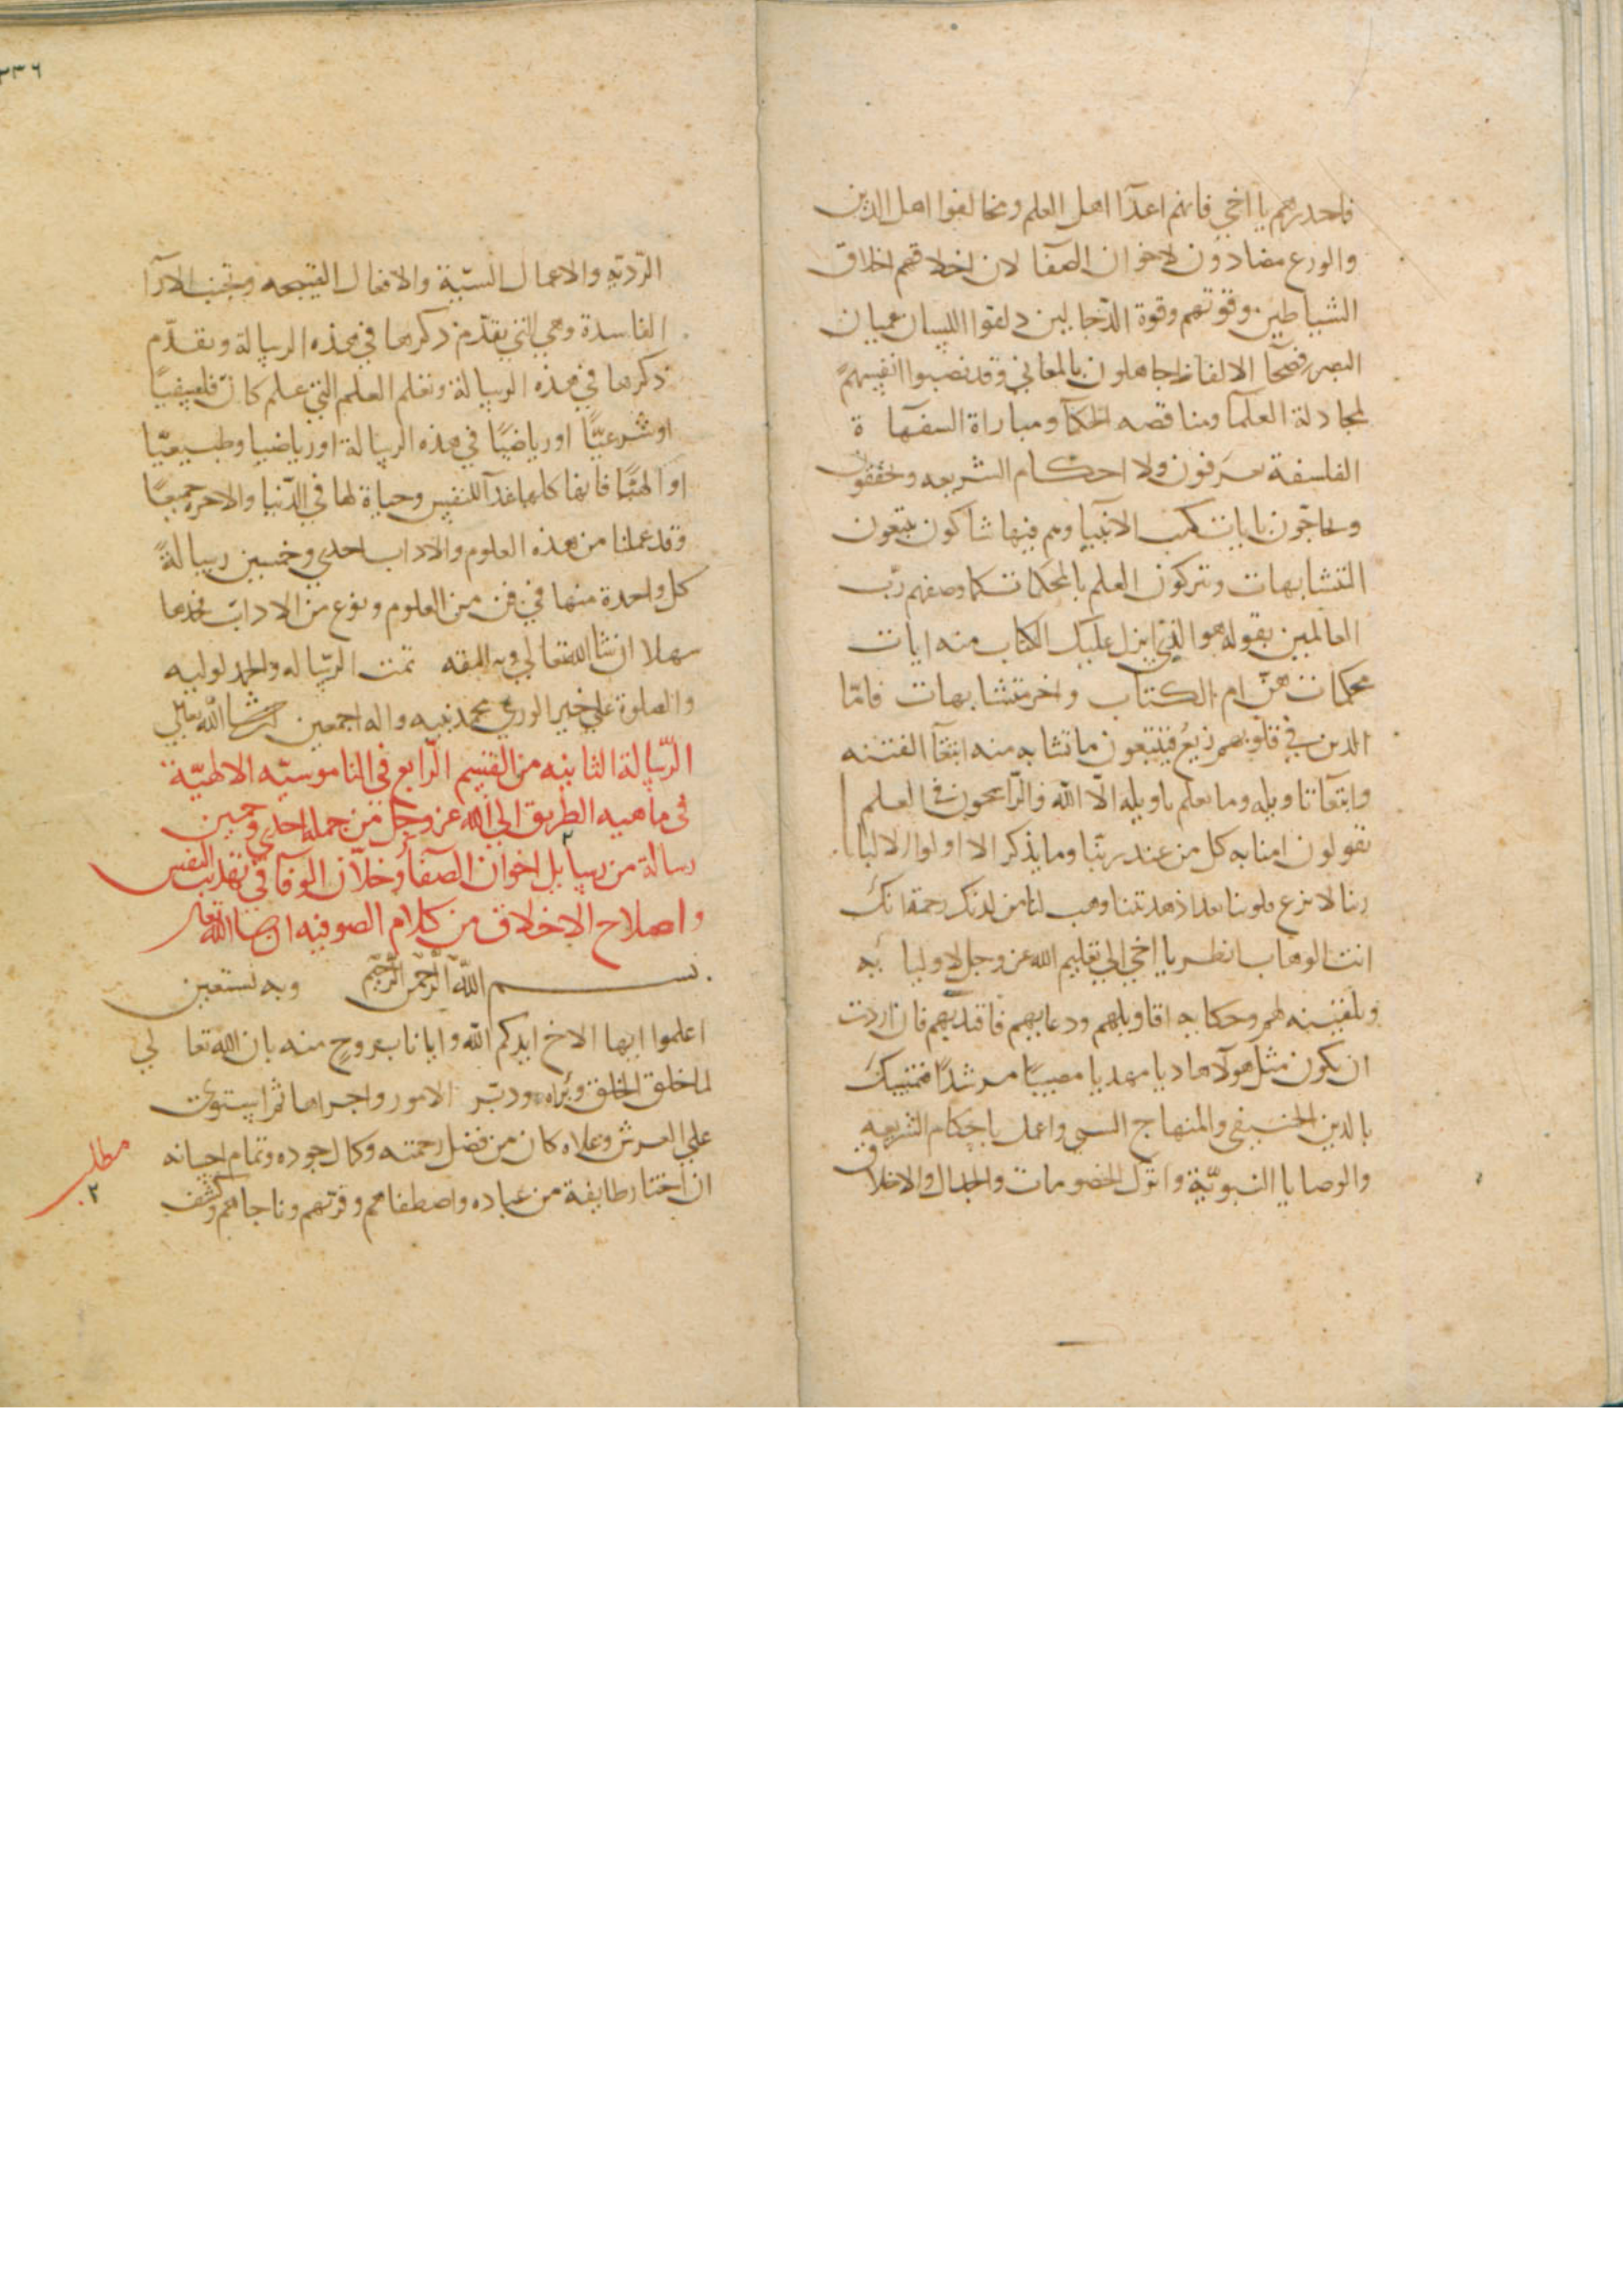 فاحدرهم يا اخي فانهم اعدآا اهل العلم ومخالفوا اهل الدين
والورع مضادون لاخوان الصفا لان اخلاقهم اخلاق
الشياطين وقوتهم وقوة الدجالين دلقوا اللسان عميان
البصر فصحآ الالفاظ جاهلون بالمعاني وقد نصبوا انفسهم
لمجادلة العلمآ ومناقصه الحكمآ ومباراة السفهآ ة
الفلسفة يعرفون ولا احكام الشريعه وتحققون
وتحاجون بايات كتب الانبيا وهم فيها شاكون يتبعون
المتشابهات ويتركون العلم بالمحكمات كما وصفهم رب
العالمين بقوله هو الذي انزل عليك الكتاب منه ايات
محكمات هن ام الكتاب واخر متشابهات فامّا
الذين في قلوبهم زيغ فيتبعون ما تشابه منه ابتغآ الفتنه
وابتغآ تاويله وما يعلم تاويله الّا الله والرّاسخون في العلم
يقولون امنا به كل من عند ربّنا وما يذكر الا اولوا الالباب
ربنا لا تزغ قلوبنا بعد اذ هديتنا وهب لنا من لدنك رحمة انك
انت الوهاب انظر يا اخي الي تعليم الله عز وجل لاوليا ئه
وتلقينه لهم وحكايه اقاويلهم ودعايهم فاقتد بهم فان اردت
ان يكون مثل هولآ هاديا مهديا مصيبًا مرشدًا فتمسك
بالدين الحنيفي والمنهاج السني واعمل باحكام الشريعه
والوصايا النبويّة واترك الخصومات والجدال والاخلاق
٢٣٦
الرّديّه والاعمال السّيّة والافعال القبيحه وتجنب الآرآا
الفاسدة وهي التي تقدّم ذكرها في هذه الرسالة ونقدّم
ذكرها في هذه الرسالة وتعلم العلم التي علم كان فلسفيًا
او شرعيّا او رياضيًا في هذه الرسالة او رياضيا وطبيعيّا
او الهيًّا فانها كلها غذآ للنفس وحياة لها في الدّنيا والاخره جميعًا
وقد عملنا من هذه العلوم والاداب احدي وخمسين رسالةً
كل واحدة منها في فن من العلوم ونوع من الاداب فخدها
سهلا ان شا الله تعالي وبه الثقه تمت الرّساله والحمد لوليه
والصلوة علي خير الوري محمد نبيه واله اجمعين ان شا الله تعالي
الرّسالة الثانيه من القسم الرّابع في الناموسيّه الالهيّة
في ماهيه الطريق الي الله عز وجل من جمله احدي وخمسين
رسالة من رسايل اخوان الصفآ وخلّان الوفآ في تهذيب النفس
واصلاح الاخلاق من كلام الصوفيه ان شا الله تعالى
بسم الله الرّحمن الرّحيم وبه نستعين
اعلموا ايها الاخ ايدكم الله وايانا بروح منه بان الله تعا لي
لما خلق الخلق وبراه ودبّر الامور واجراها ثم استوي
علي العرش وعلاه كان من فضل رحمته وكمال جوده وتمام احسانه
ان اختار طايفة من عباده واصطفاهم وقربهم وناجاهم وكشف
مطلب
٢